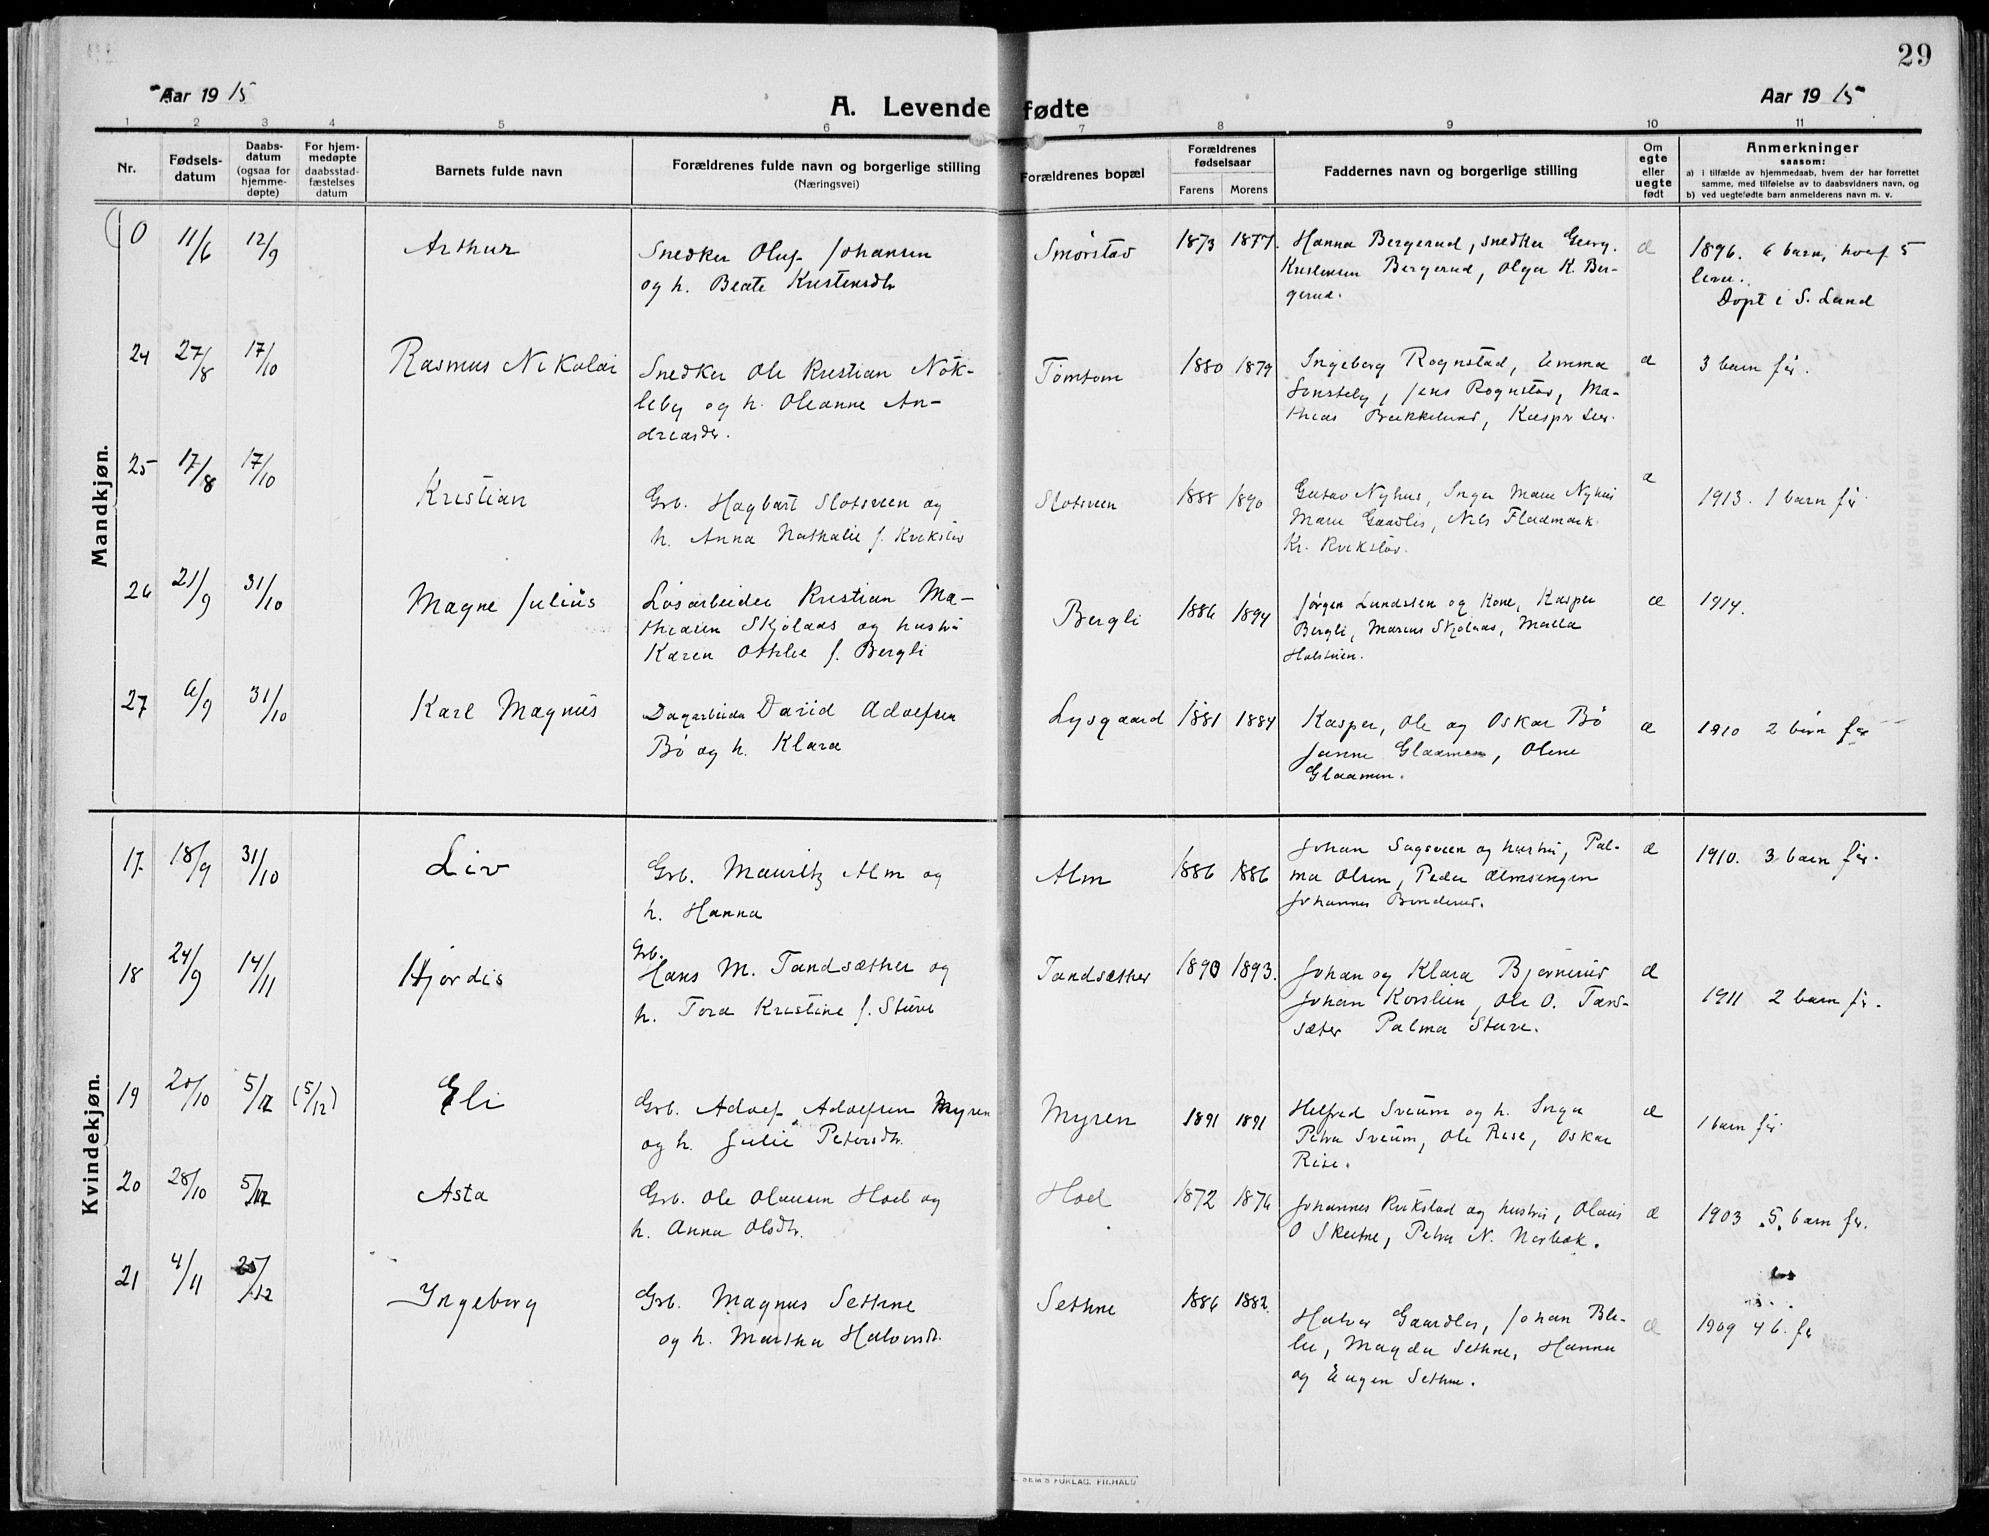 29
Aar 1915
A. Levende fødte
Aar 1915
1 2 3 4 5 6 7 8 9 10 11
Nr.
Fødsels-
datum
Daabs-
datum
(ogsaa for
hjemme-
døpte)
For hjem-
medøpte
daabsstad-
fæstelses
datum
Barnets fulde navn
Forældrenes fulde navn og borgerlige stilling
(Næringsvei)
Forældrenes bopæl
Forældrenes
fødselsaar
Farens Morens
Faddernes navn og borgerlige stilling
Om
egte
eller
uegte
født
Anmerkninger
saasom:
a) i tilfælde av hjemmedaab, hvem der har forrettet
samme, med tilføielse av to daabsvidners navn, og
b) ved uegtefødte barn anmelderens navn m. v.
Mandkjøn.
0 11/6 12/9 Arthur
Snedker Oluf Johansen
og h. Beate Kristensdtr
Smørstad 1873 1877.
Hanna Bergerud, snedker Georg
Kristensen Bergerud, Olga K. Ber-
gerud.
æ
1896. 6 barn, hvaf 5
leve.
Døpt i S. Land
24 27/8 17/10 Rasmus Nikolai
Snedker Ole Kristian Nøk-
leby og h. Oleanne An-
dreasdtr.
Tømtom 1880 1879
Ingeborg Rognstad, Emma
Sønsteby, Jens Rognstad, Ma-
thias Brækkelund, Kasper
æ
3 barn før.
25 17/8 17/10 Kristian
Grb. Hagbart Slotsveen og
h. Anna Nathalie f. Kvikstad
Slotsveen 1888 1890
Gustav Nyhus, Inga Marie Nyhus
Marie Gaardlös, Nils Fladmark
Kr. Kvikstad.
æ
1913. 1 barn før
26 21/9 31/10 Magne Julius
Løsarbeider Kristian Ma-
thiasen Skjølaas og hustru
Karen Otthilie f. Bergli
Bergli 1886 1894
Jørgen Lundsveen og Kone, Kasper
Bergli, Marius Skjølaas, Malla
Holstuen.
æ
1914.
27 6/9 31/10 Karl Magnus
Dagarbeider David Adolfsen
Bø og h. Klara
Lysgaard 1881 1884
Kasper, Ole og Oskar Bø
Janne Glaamen, Oline
Glaamen.
æ
1910 2 barn før
Kvindekjøn.
17. 18/9 31/10 Liv
Grb. Mauritz Alm og
h. Hanna
Alm 1886 1886
Johan Sagsveen og hustru, Pal-
ma Olsen, Peder Almsengen
Johannes Bonderud.
æ
1910. 3 barn før.
18 24/9 14/11 Hjørdis
Grb.
Hans M. Tandsæther og
h. Tora Kristine f. Stuve
Tandsæther 1890 1893.
Johan og Klara Bjørnerud
Johan Korslien, Ole O. Tand-
sæter Palma Stuve.
æ
1911 2 barn før.
19 20/10 5/12 (5/12) Eli
Grb. Adolf Adolfsen Myren
og h. Julie Petersdtr.
Myren 1891 1891
Helfred Sveum og h. Inga
Petra Sveum, Ole Rise, Oskar
Rise.
æ
1 barn før
20 28/10 5/12 Asta
Grb. Ole Olausen Hoel og
h. Anna Olsdtr.
Hoel 1872 1876
Johannes Kvikstad og hustru, Olaus
O Skutne, Petra N. Nørbæk.
æ
1903 5 barn før.
21 4/11 26/12 Ingeborg
Grb. Magnus Sethne
og h. Martha Halvorsdtr.
Sethne 1886 1882.
Halvor Gaardlös, Johan Ble-
lie, Magda Sethne, Hanna
og Eugen Sethne.
æ
1909 4 b. før
SEM'S FORLAG, FR.HALD